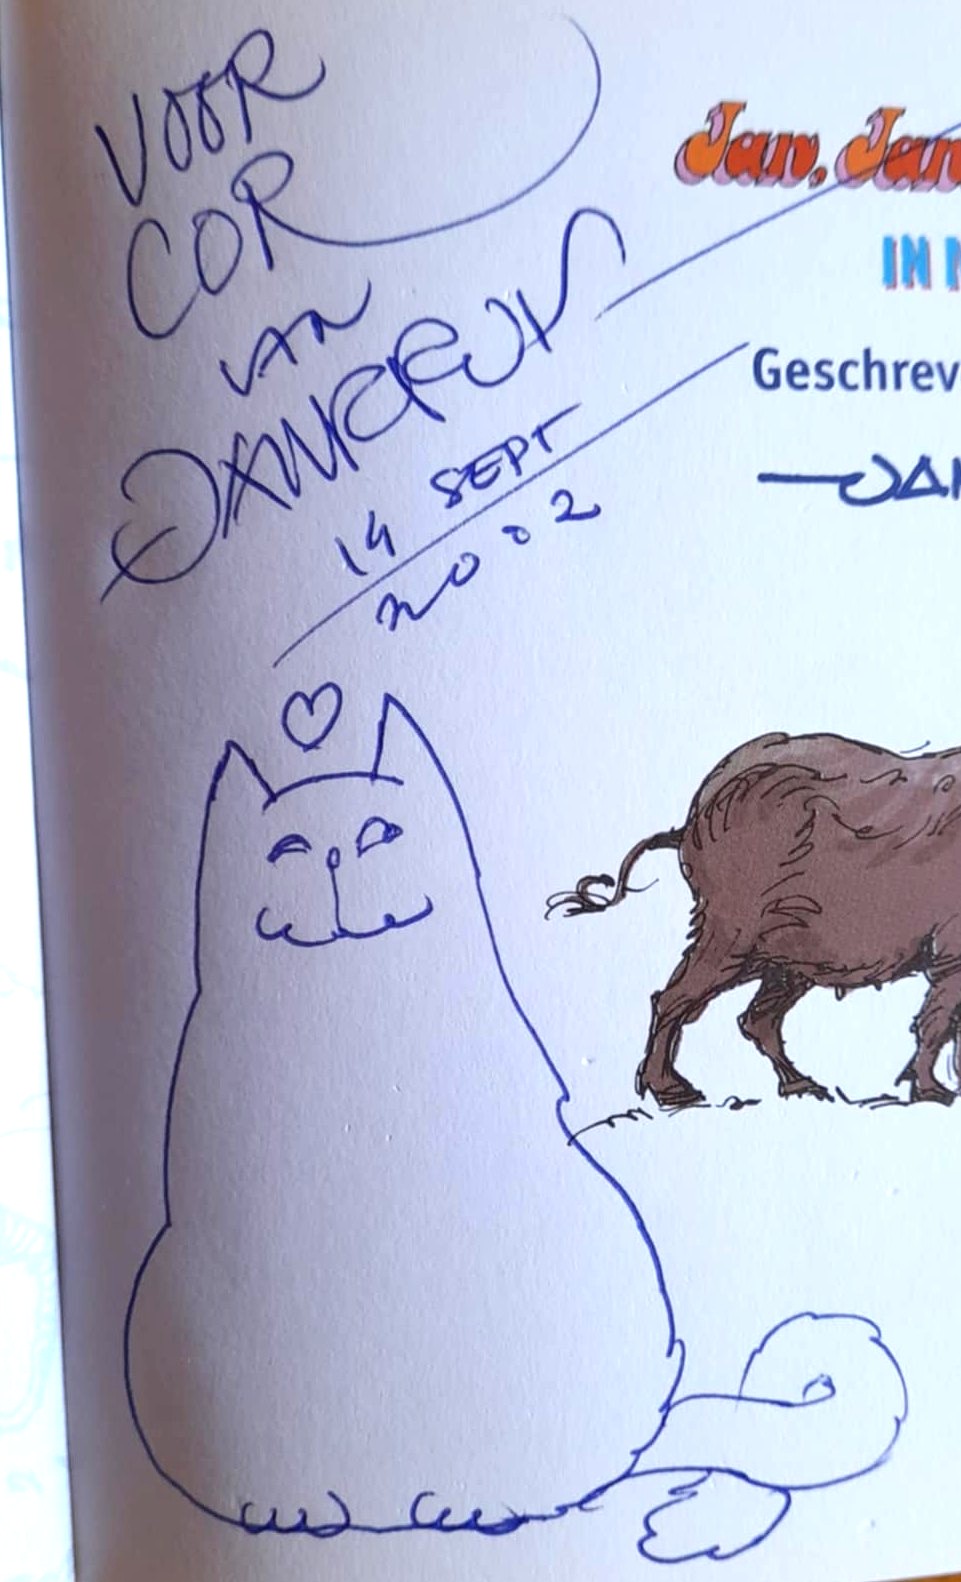 VOOR
COR
VAN
JAN KRUIS
14 SEPT
2002
Jan, Jan
IN N
Geschrev
JAN